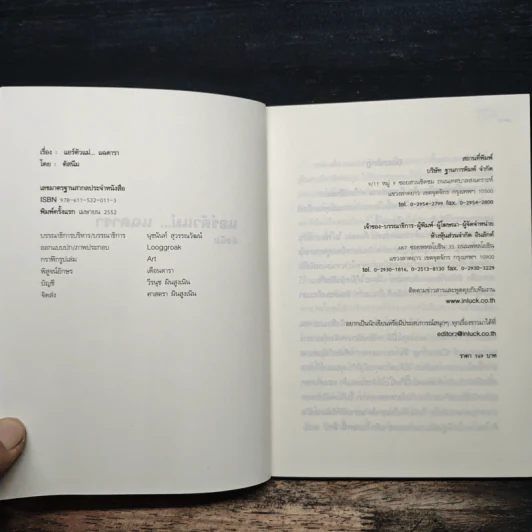 เรื่อง : แอร์ตัวแม่... แฉดารา
โดย : ดิสนีม
เลขมาตรฐานสากลประจำหนังสือ
ISBN 978-611-522-011-3
พิมพ์ครั้งแรก เมษายน 2552
บรรณาธิการบริหาร/บรรณาธิการ นุชนันท์ สุวรรณวัฒน์
ออกแบบปก/ภาพประกอบ Looggroak
กราฟิกรูปเล่ม Art
พิสูจน์อักษร เดือนดารา
บัญชี วีรนุช มินสูงเนิน
จัดส่ง ศาสตรา มินสูงเนิน
สถานที่พิมพ์
บริษัท ฐานการพิมพ์ จำกัด
9/11 หมู่ 5 ซอยสวนเชิดชม ถนนเทศบาลสงเคราะห์
แขวงลาดยาว เขตจตุจักร กรุงเทพฯ 10900
tel. 0-2954-2799 แฟกซ์. 0-2954-2800
เจ้าของ-บรรณาธิการ-ผู้พิมพ์-ผู้โฆษณา-ผู้จัดจำหน่าย
ห้างหุ้นส่วนจำกัด อินลักก์
487 ซอยพหลโยธิน 32 ถนนพหลโยธิน
แขวงลาดยาว เขตจตุจักร กรุงเทพฯ 10900
tel. 0-2930-1816, 0-2513-8130 แฟกซ์. 0-2930-3229
ติดตามข่าวสารและพูดคุยกับทีมงาน
www.inluck.co.th
อยากเป็นนักเขียนหรือมีประสบการณ์สนุกๆ ทุกเรื่องราวมาได้ที่
editor2@inluck.co.th
ราคา 149 บาท